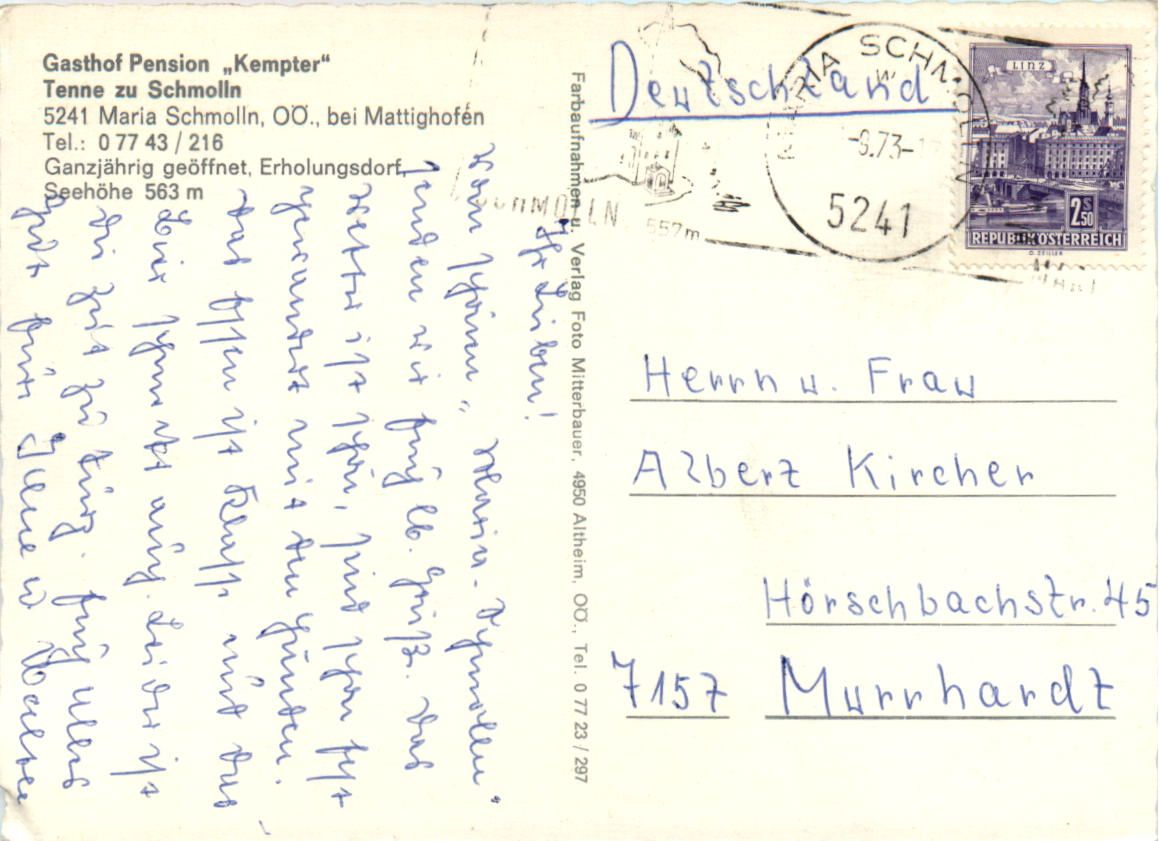 Gasthof Pension „Kempter“
Tenne zu Schmolln
5241 Maria Schmolln, OÖ., bei Mattighofen
Tel.: 0 77 43 / 216
Ganzjährig geöffnet, Erholungsdorf,
Seehöhe 563 m
Ihr Lieben!
Vom schönen „Maria-Schmolln“
senden wir Euch lb. Grüße. Das
Wetter ist schön, sind schon fest
gewandert mit den Hunden.
Das Essen ist Klasse und das
Bier schmeckt auch. Leider ist
die Zeit zu kurz. Euch alles
Gute Eure
Farbaufnahmen u. Verlag Foto Mitterbauer, 4950 Altheim, OÖ., Tel. 0 77 23 / 297
Deutschland
MARIA SCHMOLLN
-9.73-
5241
SCHMOLLN 557m
LINZ
2 S 50
REPUBLIK ÖSTERREICH
O. ZEILLER
Herrn u. Frau
Albert Kircher
Hörschbachstr. 45
7157 Murrhardt